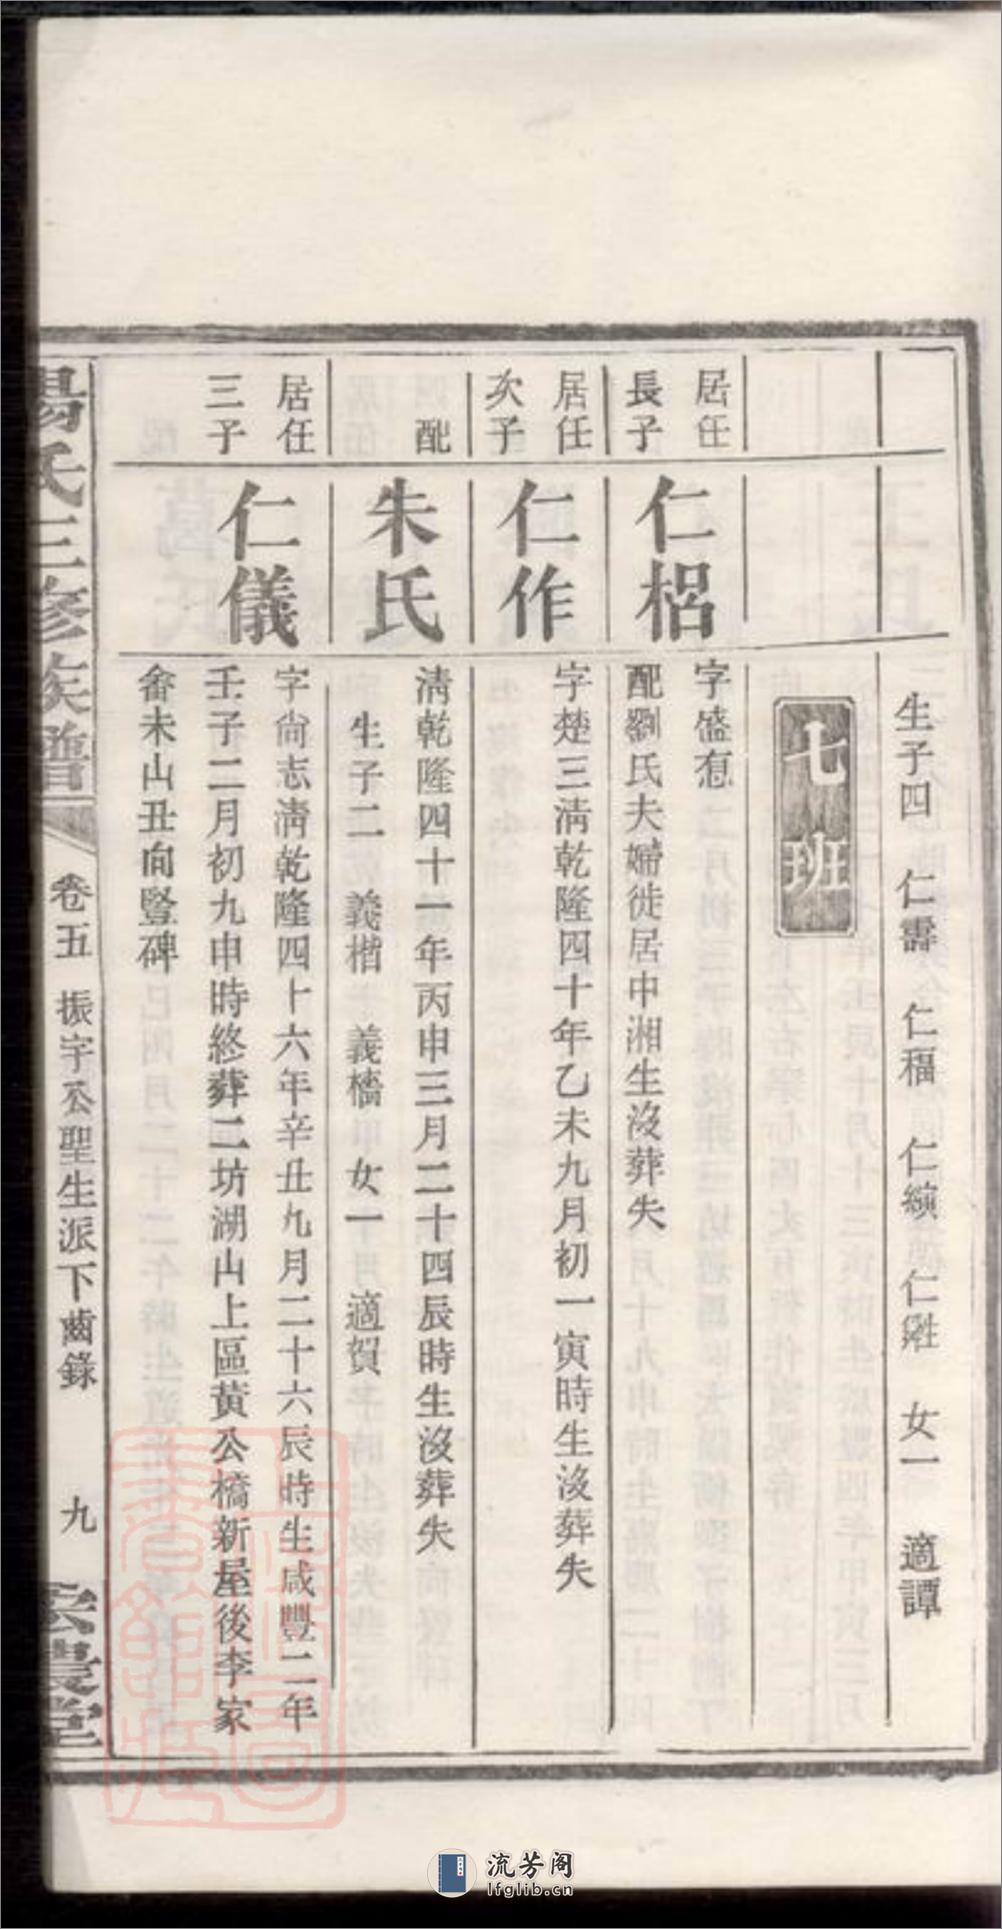 生子四 仁霨 仁福 仁纘 仁甡 女一 適譚
七班
居任
長子
仁梠
字盛愆
配劉氏夫婦徙居中湘生沒葬失
居任
次子
仁作
字楚三清乾隆四十年乙未九月初一寅時生沒葬失
配
朱氏
清乾隆四十一年丙申三月二十四辰時生沒葬失
生子二 義楷 義檣 女一 適賀
居任
三子
仁儀
字尙志清乾隆四十六年辛丑九月二十六辰時生咸豐二年
壬子二月初九申時終葬二坊湖山上區黃公橋新屋後李家
畬未山丑向豎碑
楊氏三修族譜
卷五 振宇公聖生派下齒錄
九
宏農堂
流芳阁
lfglib.cn